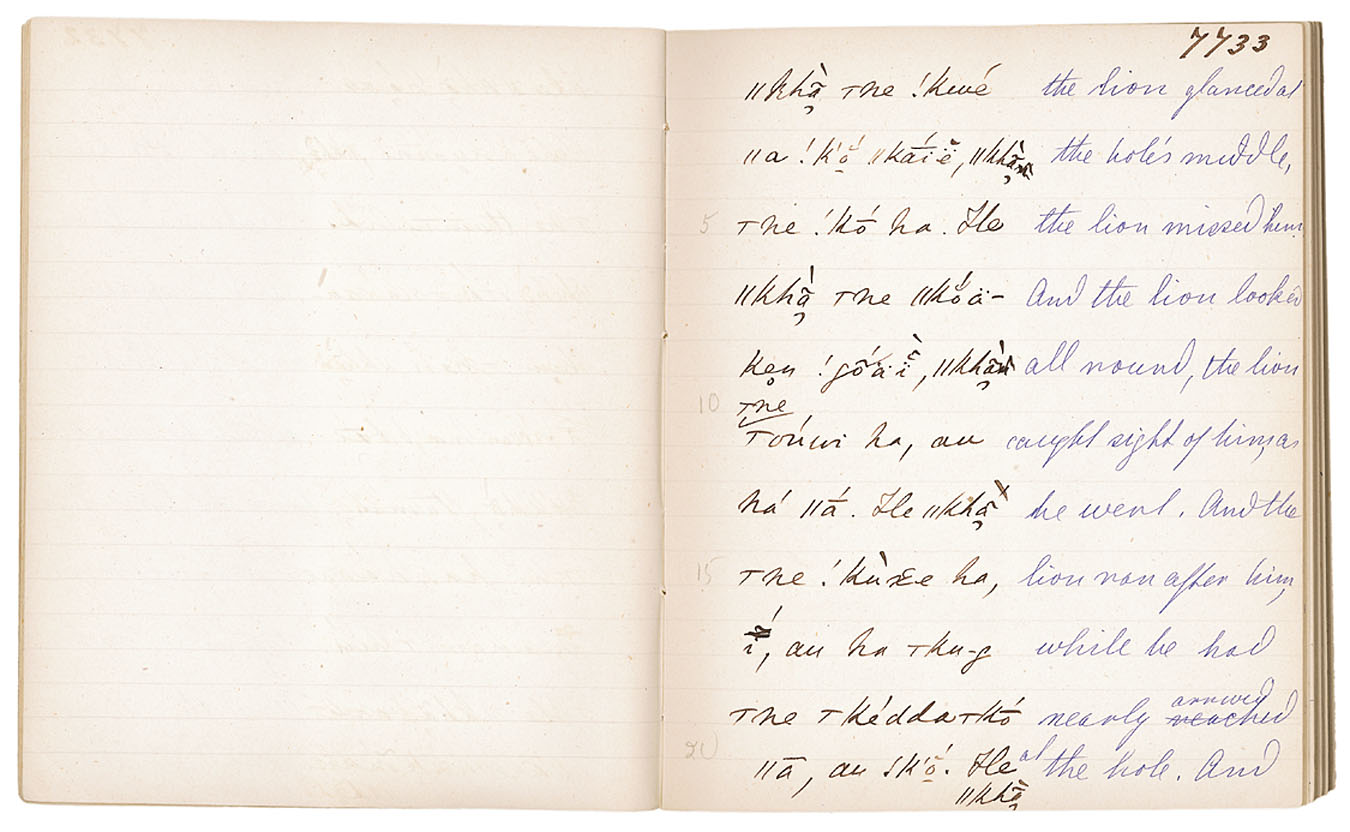 7733
ǁkhã̀ ͭne !kwé the lion glanced at
ǁa !k'ṓ̆ ǁkáï̄ĕ, the hole's middle,
5 ͭne !kṓ ha. He the lion missed him.
ǁkhã̀ ͭne ǁkṓ̆ä- And the lion looked
ken !gṓäï, all round, the lion
10 ͭne
ͭóuwi ha, au caught sight of him, as
há ǁá̄. He ǁkhã̀ he went. And the
15 ͭne !kùxe ha, lion ran after him,
í, au ha ͭku-g while he had
arrived
ͭne ͭkédda ͭkṓ nearly reached
20 ǁā, au !k'ṓ̆. He at the hole. And
ǁkhã̀